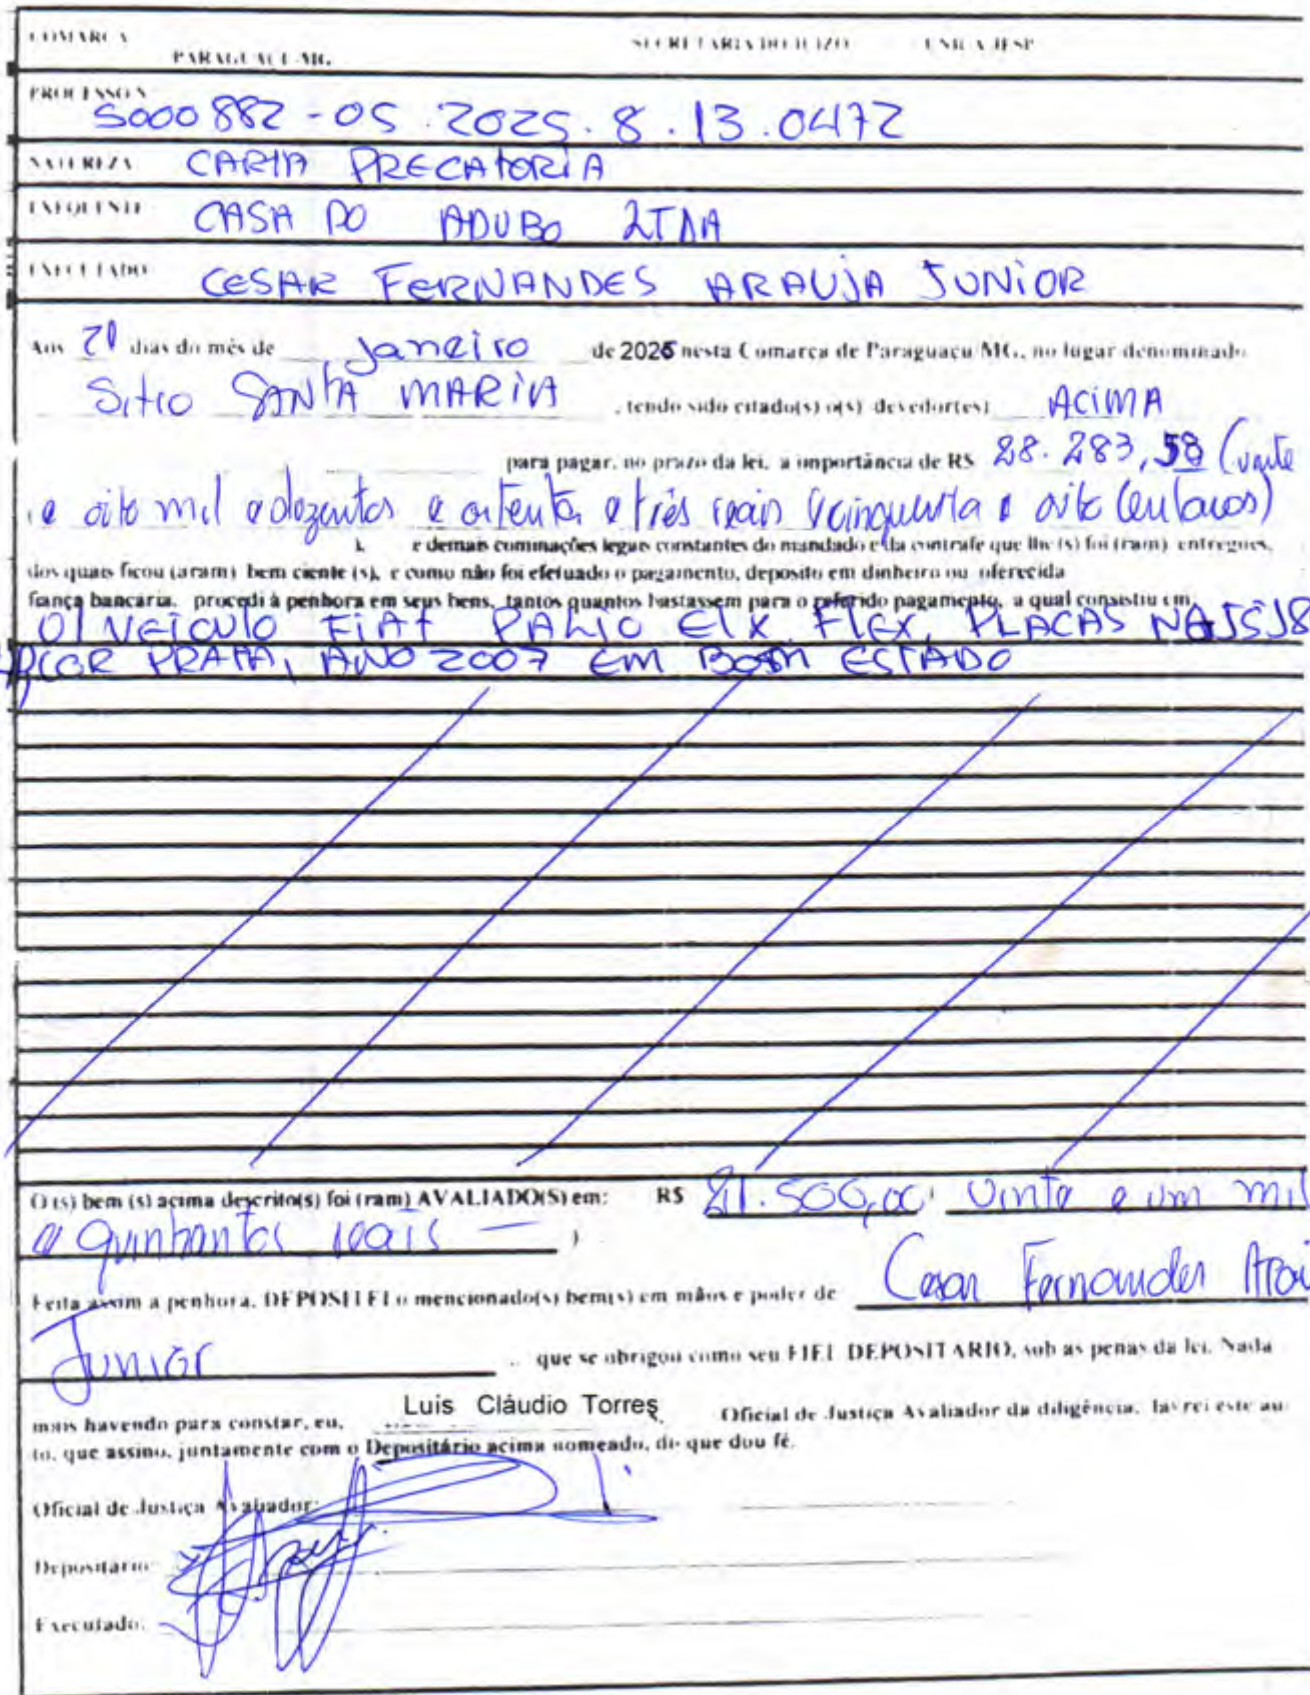 COMARCA PARAGUAÇU-MG. SECRETARIA DO JUIZO UNICA JESP
PROCESSO N 5000882-05.2025.8.13.0472
NATUREZA CARTA PRECATORIA
EXEQUENTE CASA DO ADUBO LTDA
EXECUTADO CESAR FERNANDES ARAUJA JUNIOR
Aos dias do mês de Janeiro de 2026 nesta Comarca de Paraguaçu MG., no lugar denominado
Sitio SANTA MARIA , tendo sido citado(s) o(s) devedor(es) ACIMA
para pagar, no prazo da lei, a importância de R$ 28.283,58 (vinte
e oito mil e dozentos e oitenta e três reais e cinquenta e oito centavos)
e demais cominações legais constantes do mandado e da contrafe que lhe (s) foi (ram) entregues,
dos quais ficou (aram) bem ciente (s), e como não foi efetuado o pagamento, deposito em dinheiro ou oferecida
fiança bancária, procedi à penhora em seus bens, tantos quantos bastassem para o referido pagamento, a qual consistiu em
01 VEÍCULO FIAT PALIO ELX FLEX, PLACAS
COR PRATA, ANO 2007 EM BOM ESTADO
O (s) bem (s) acima descrito(s) foi (ram) AVALIADO(S) em: R$ 21.500,00 Vinte e um mil
e quinhentos reais )
Feita assim a penhora, DEPOSITEI o mencionado(s) bem(s) em mãos e poder de Cesar Fernandes
Junior , que se obrigou como seu FIEL DEPOSITARIO, sob as penas da lei. Nada
mais havendo para constar, eu, Luis Cláudio Torres Oficial de Justiça Avaliador da diligência, lavrei este au-
to, que assino, juntamente com o Depositário acima nomeado, do que dou fé.
Oficial de Justiça Avaliador:
Depositário:
Executado: